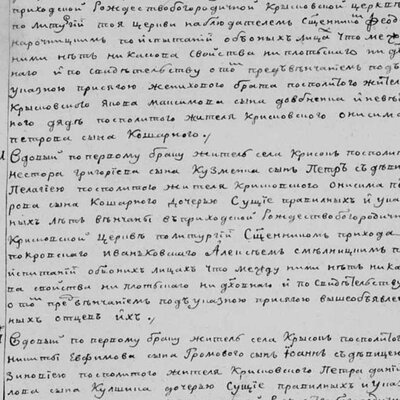 приходской рождествобогородичной крисковской церквѣ
по литургіи тоя церкви наблюдателем священником Фео
нарочнициимъ по испытаній обыскъ лицъ что ме
ними нѣтъ ни какова свойства ни плотскаго ни д
наго и по свидѣтельству о том предъ вѣнчаніем подъ
указною присягою женихового брата посполитого жителя
крысковского якова максимова сына довбненка и невѣ
ного дядѣ посполитого жителя крисковского онисима
петрова сына кошарного
вдовый по первому браку житель села крисокъ посполит
нестора григорієва сына кузменка сынъ петръ съ дѣвицею
пелагіею посполитого жителя крисковского онисима пе
рова сына кошарного дочерью сущіе правилныхъ и указ
ныхъ лѣтъ вѣнчаны въ приходской рождествобогородич
крисковской церквѣ по литургій священником прихода
покровского иванковского алексѣемъ смѣлницкимъ п
испитаній обоихъ лицахъ что между ними нѣтъ ни ка
ва свойства ни плотскаго ни духовнаго и по свидѣтельству
о том предъ вѣнчаніемъ подъ указною присягою вышеобъявлен
ныхъ отцевъ ихъ
вдовый по первому браку житель села крысокъ посполитого
никиты ефимова сына громового сынъ іоаннъ съ дѣвицею
зиновією посполитого жителя крисковского петра дани
лова сына кулшина дочерью сущіе правилныхъ и указ